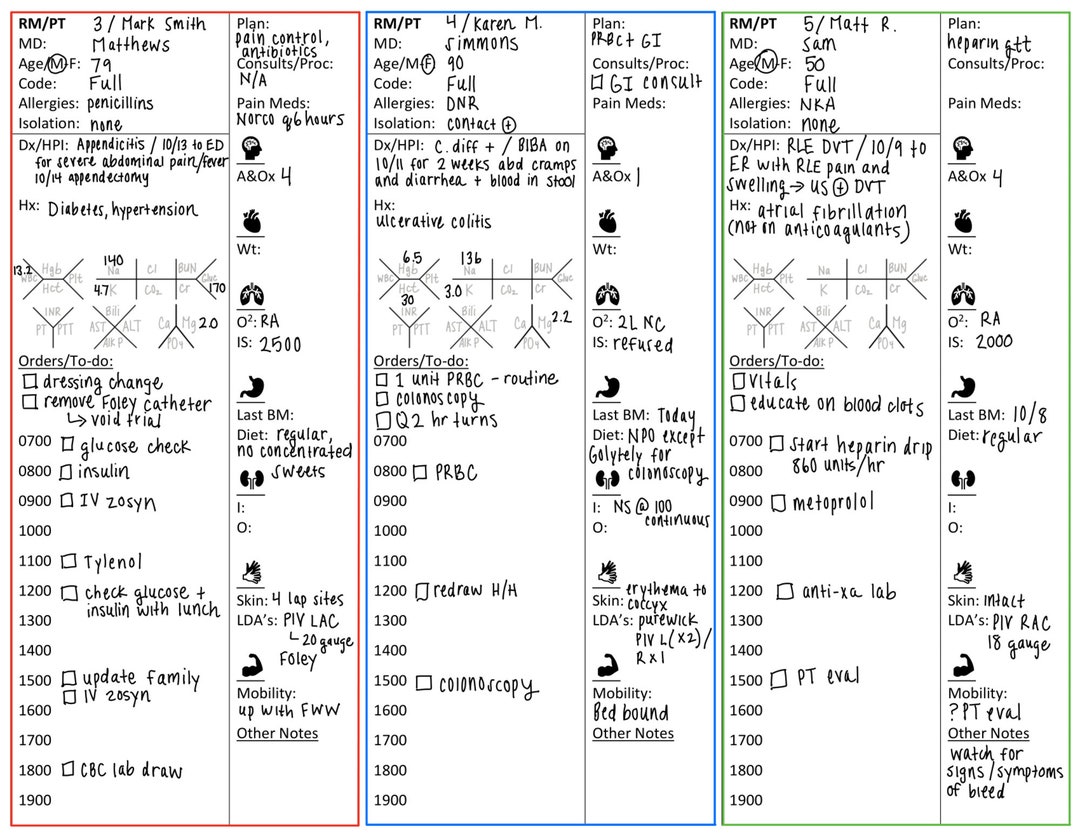 RM/PT 3 / Mark Smith
MD: Matthews
Age/M-F: 79
Code: Full
Allergies: penicillins
Isolation: none
Plan:
pain control,
antibiotics
Consults/Proc:
N/A
Pain Meds:
Norco q6hours
Dx/HPI: Appendicitis / 10/13 to ED
for severe abdominal pain/fever
10/14 appendectomy
Hx: Diabetes, hypertension
A&Ox 4
Wt:
13.2 WBC Hgb Hct Plt
140 Na Cl BUN Gluc 170
4.7 K CO₂ Cr
INR PT PTT
Bili AST ALT Alk P
Ca Mg 2.0 PO₄
O²: RA
IS: 2500
Orders/To-do:
☐ dressing change
☐ remove Foley catheter
↳ void trial
0700 ☐ glucose check
0800 ☐ insulin
0900 ☐ IV zosyn
1000
1100 ☐ Tylenol
1200 ☐ check glucose +
insulin with lunch
1300
1400
1500 ☐ update family
☐ IV zosyn
1600
1700
1800 ☐ CBC lab draw
1900
Last BM:
Diet: regular,
no concentrated
sweets
I:
O:
Skin: 4 lap sites
LDA's: PIV LAC
↳ 20 gauge
Foley
Mobility:
up with FWW
Other Notes
RM/PT 4 / Karen M.
MD: Simmons
Age/M-F: 90
Code: Full
Allergies: DNR
Isolation: contact ⊕
Plan:
PRBC + GI
Consults/Proc:
☐ GI consult
Pain Meds:
Dx/HPI: C. diff + / BIBA on
10/11 for 2 weeks abd cramps
and diarrhea + blood in stool
Hx:
ulcerative colitis
A&Ox 1
Wt:
6.5
WBC Hgb Hct Plt
30
136 Na Cl BUN Gluc
3.0 K CO₂ Cr
INR PT PTT
Bili AST ALT Alk P
Ca Mg 2.2 PO₄
O²: 2L NC
IS: refused
Orders/To-do:
☐ 1 unit PRBC - routine
☐ colonoscopy
☐ Q2 hr turns
0700
0800 ☐ PRBC
0900
1000
1100
1200 ☐ redraw H/H
1300
1400
1500 ☐ colonoscopy
1600
1700
1800
1900
Last BM: Today
Diet: NPO except
Golytely for
colonoscopy
I: NS @ 100
continuous
O:
Skin: erythema to
coccyx
LDA's: purewick
PIV L(x2)/
R x 1
Mobility:
Bed bound
Other Notes
RM/PT 5/ Matt R.
MD: Sam
Age/M-F: 50
Code: Full
Allergies: NKA
Isolation: none
Plan:
heparin gtt
Consults/Proc:
Pain Meds:
Dx/HPI: RLE DVT / 10/9 to
ER with RLE pain and
swelling → US ⊕ DVT
Hx: atrial fibrillation
(not on anticoagulants)
A&Ox 4
Wt:
WBC Hgb Hct Plt
Na Cl BUN Gluc
K CO₂ Cr
INR PT PTT
Bili AST ALT Alk P
Ca Mg PO₄
O²: RA
IS: 2000
Orders/To-do:
☐ Vitals
☐ educate on blood clots
0700 ☐ Start heparin drip
860 units/hr
0800
0900 ☐ metoprolol
1000
1100
1200 ☐ anti-xa lab
1300
1400
1500 ☐ PT eval
1600
1700
1800
1900
Last BM: 10/8
Diet: regular
I:
O:
Skin: Intact
LDA's: PIV RAC
18 gauge
Mobility:
? PT eval
Other Notes
watch for
signs/symptoms
of bleed